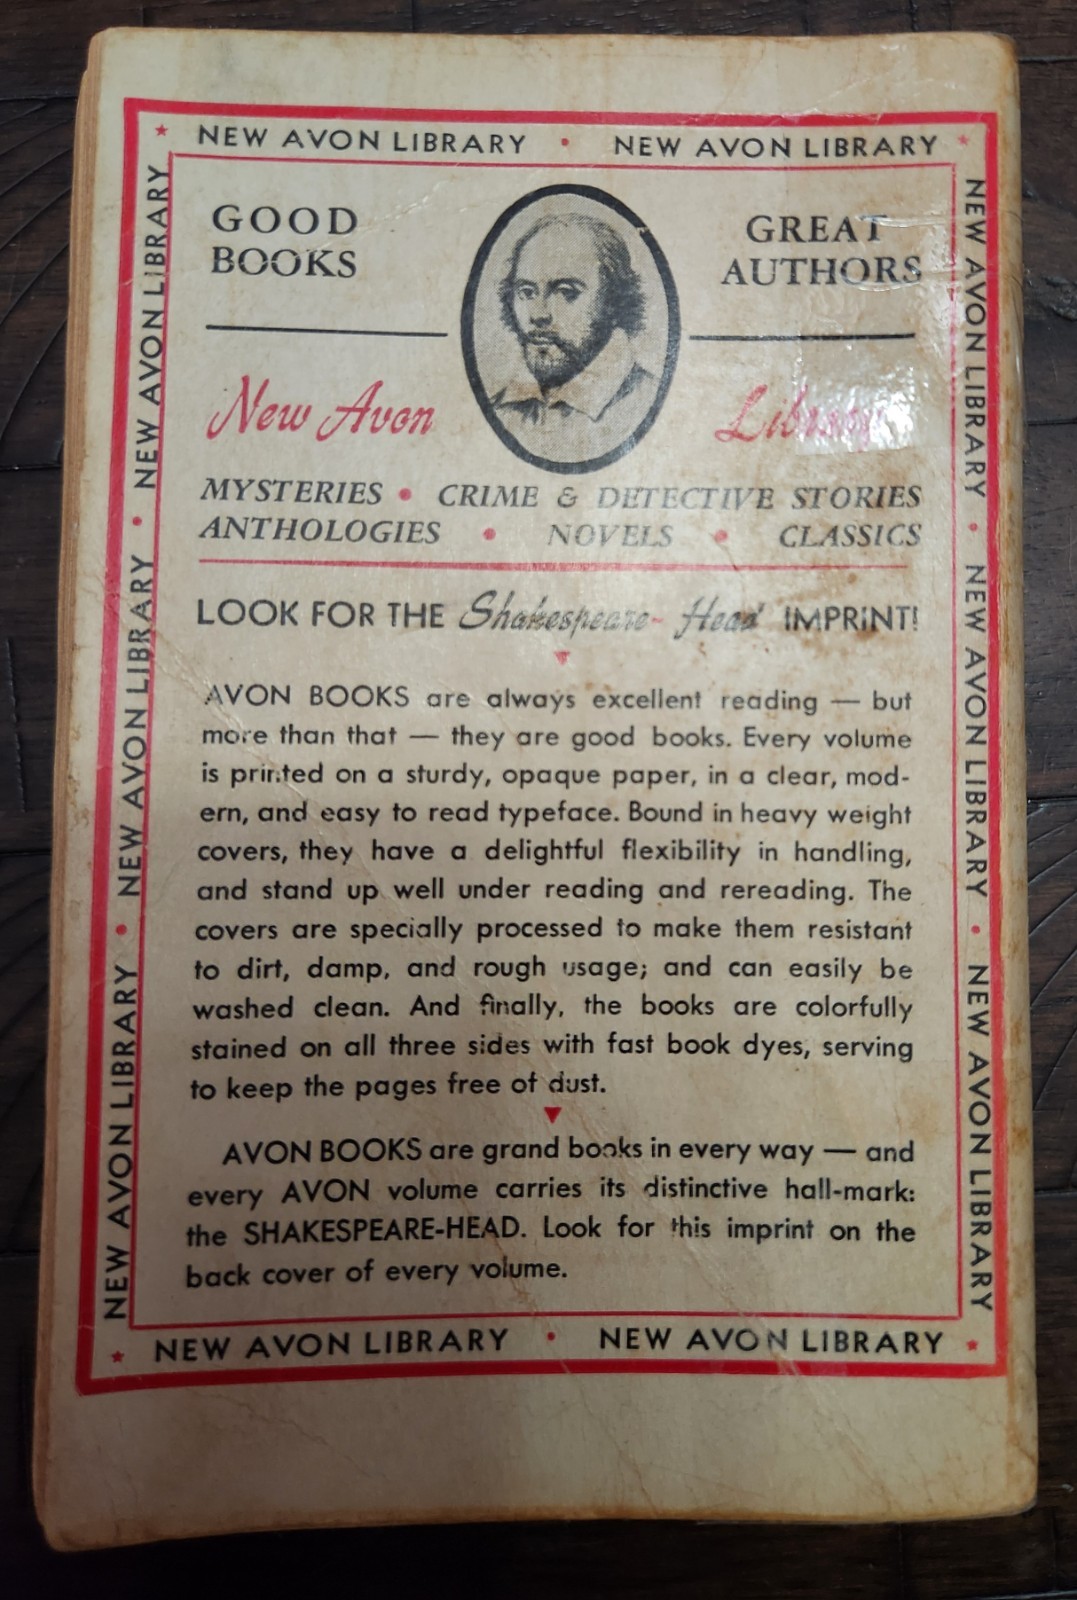 NEW AVON LIBRARY • NEW AVON LIBRARY
NEW AVON LIBRARY • NEW AVON LIBRARY • NEW AVON LIBRARY
GOOD
BOOKS
GREAT
AUTHORS
New Avon Library
MYSTERIES • CRIME & DETECTIVE STORIES
ANTHOLOGIES • NOVELS • CLASSICS
LOOK FOR THE Shakespeare-Head IMPRINT!
AVON BOOKS are always excellent reading — but
more than that — they are good books. Every volume
is printed on a sturdy, opaque paper, in a clear, mod-
ern, and easy to read typeface. Bound in heavy weight
covers, they have a delightful flexibility in handling,
and stand up well under reading and rereading. The
covers are specially processed to make them resistant
to dirt, damp, and rough usage; and can easily be
washed clean. And finally, the books are colorfully
stained on all three sides with fast book dyes, serving
to keep the pages free of dust.
AVON BOOKS are grand books in every way — and
every AVON volume carries its distinctive hall-mark:
the SHAKESPEARE-HEAD. Look for this imprint on the
back cover of every volume.
NEW AVON LIBRARY • NEW AVON LIBRARY • NEW AVON LIBRARY
NEW AVON LIBRARY • NEW AVON LIBRARY